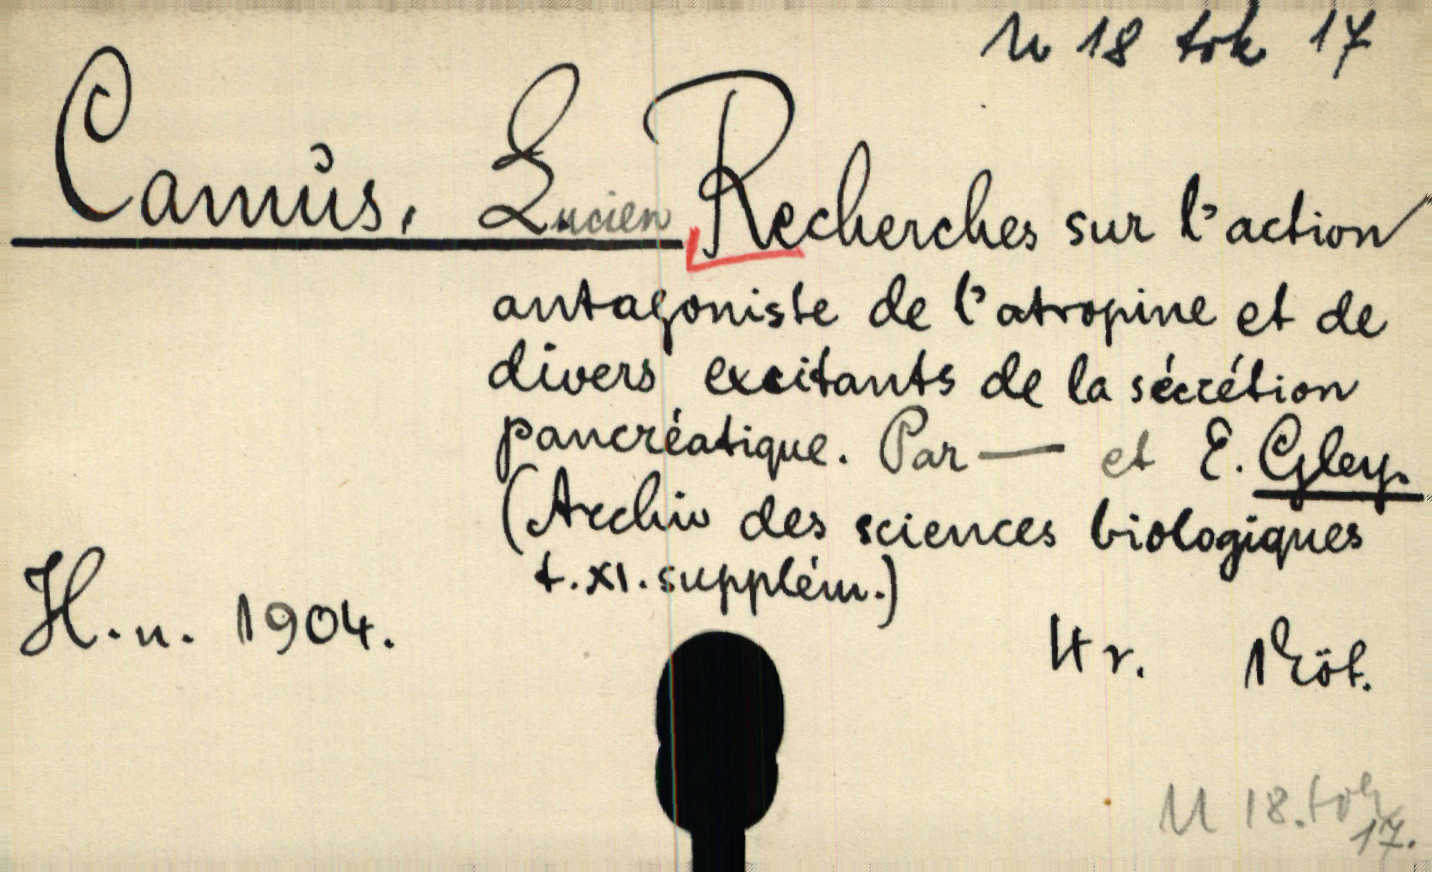 U 18 tok 17
Camus. Lucien Recherches sur l'action
antagoniste de l'atropine et de
divers excitants de la sécrétion
pancréatique. Par — et E. Gley.
(Archiv des sciences biologiques
t. XI. supplém.)
H. n. 1904.
4r. 1 köt.
U 18. tok
17.